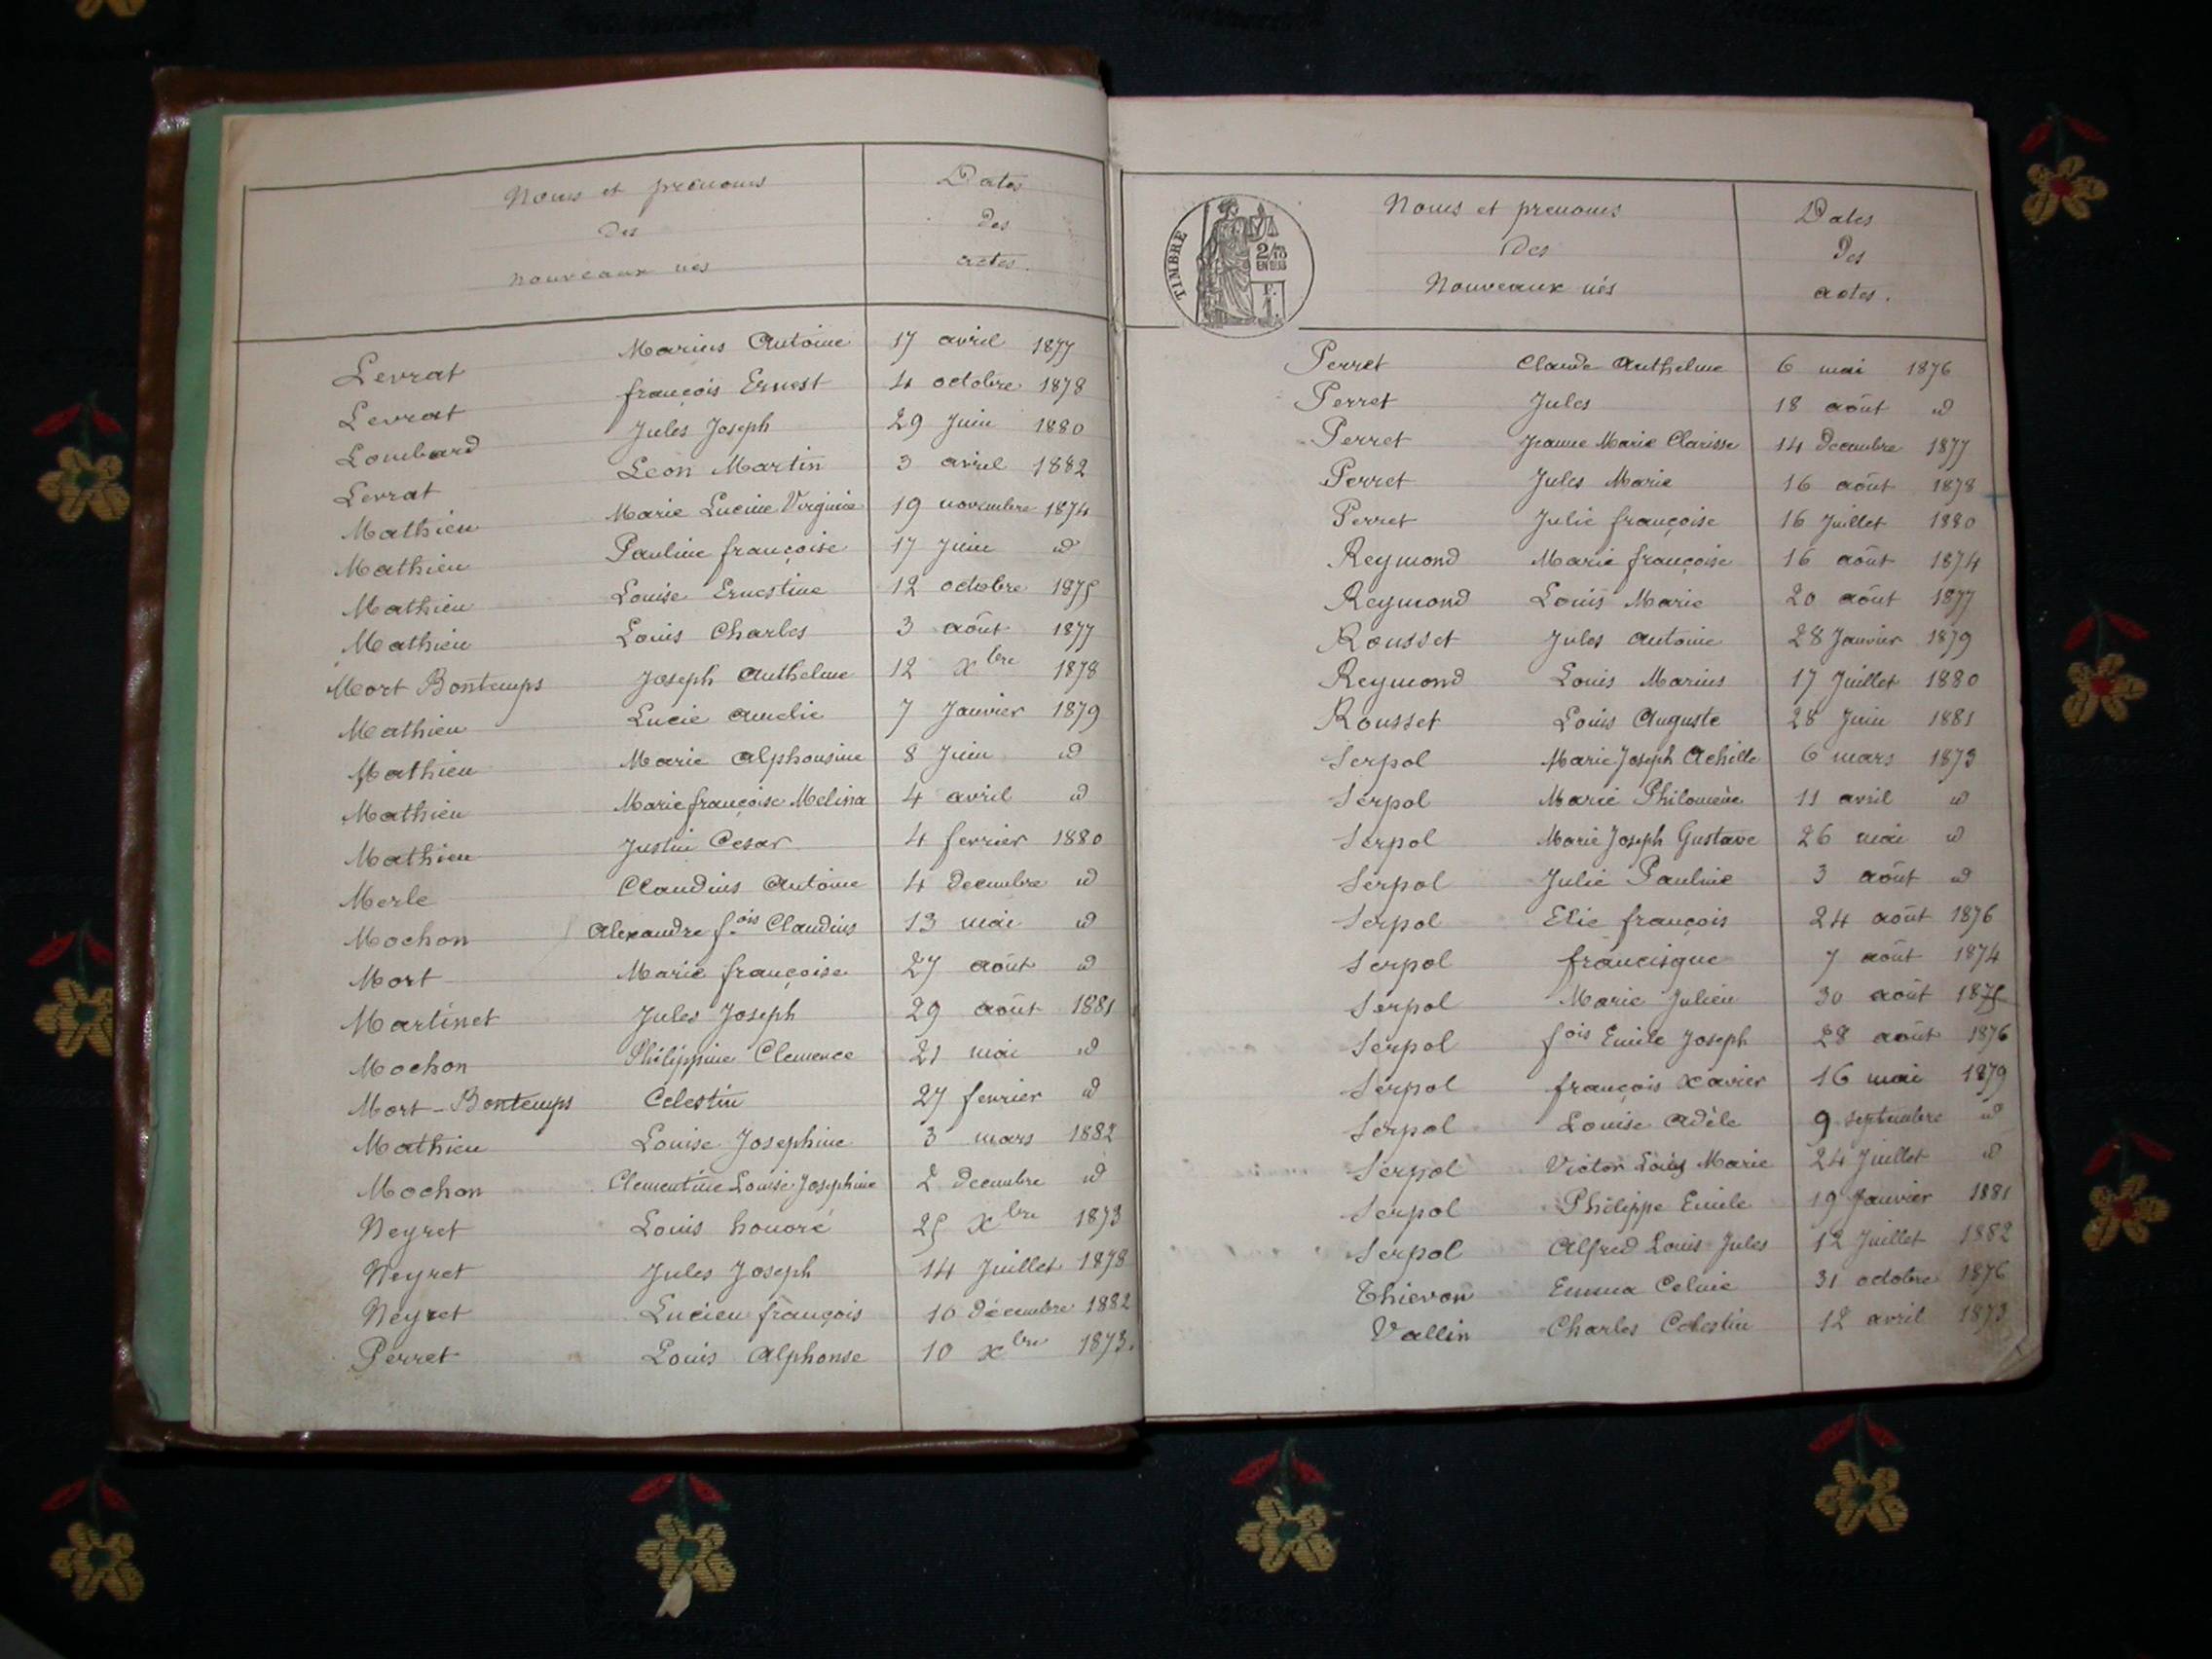 Noms et prénoms Dates
des des
nouveaux nés actes.
Levrat Marius Antoine 17 avril 1877
Levrat françois Ernest 4 octobre 1878
Lombard Jules Joseph 29 Juin 1880
Levrat Leon Martin 3 avril 1882
Mathieu Marie Lucine Virginie 19 novembre 1874
Mathieu Pauline françoise 17 Juin id
Mathieu Louise Ernestine 12 octobre 1875
Mathieu Louis Charles 3 août 1877
Mort Bontemps Joseph Anthelme 12 Xbre 1878
Mathieu Lucie Amelie 7 Janvier 1879
Mathieu Marie Alphonsine 8 Juin id
Mathieu Marie françoise Melina 4 avril id
Mathieu Justin Cesar 4 fevrier 1880
Merle Claudius Antoine 4 decembre id
Mochon Alexandre f.ois Claudius 13 mai id
Mort Marie françoise 27 août id
Martinet Jules Joseph 29 août 1881
Mochon Philippine Clemence 21 mai id
Mort-Bontemps Celestin 27 fevrier id
Mathieu Louise Josephine 3 mars 1882
Mochon Clementine Louise Josephine 2 decembre id
Neyret Louis honoré 25 Xbre 1873
Neyret Jules Joseph 14 Juillet 1878
Neyret Lucien françois 10 décembre 1882
Perret Louis Alphonse 10 Xbre 1873.
TIMBRE
2/10
EN SUS
F.
1.
Noms et prenoms Dates
des des
Nouveaux nés actes.
Perret Claude Anthelme 6 mai 1876
Perret Jules 18 août id
Perret Jeanne Marie Clarisse 14 decembre 1877
Perret Jules Marie 16 août 1878
Perret Julie françoise 16 Juillet 1880
Reymond Marie françoise 16 août 1874
Reymond Louis Marie 20 août 1877
Rousset Jules Antoine 28 Janvier 1879
Reymond Louis Marius 17 Juillet 1880
Rousset Louis Auguste 28 Juin 1881
Serpol Marie Joseph Achille 6 mars 1873
Serpol Marie Philomène 11 avril id
Serpol Marie Joseph Gustave 26 mai id
Serpol Julie Pauline 3 août id
Serpol Elie françois 24 août 1876
Serpol francisque 7 août 1874
Serpol Marie Julien 30 août 1875
Serpol fois Emile Joseph 28 août 1876
Serpol françois Xavier 16 mai 1879
Serpol Louise Adèle 9 septembre id
Serpol Victor Louis Marie 24 Juillet id
Serpol Philippe Emile 19 Janvier 1881
Serpol Alfred Louis Jules 12 Juillet 1882
Thievon Emma Celine 31 octobre 1876
Vallin Charles Celestin 12 avril 1873